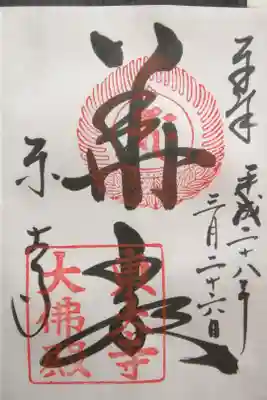 奉拝
平成二十八年
三月二十六日
華嚴
東大寺
東大寺
大佛殿